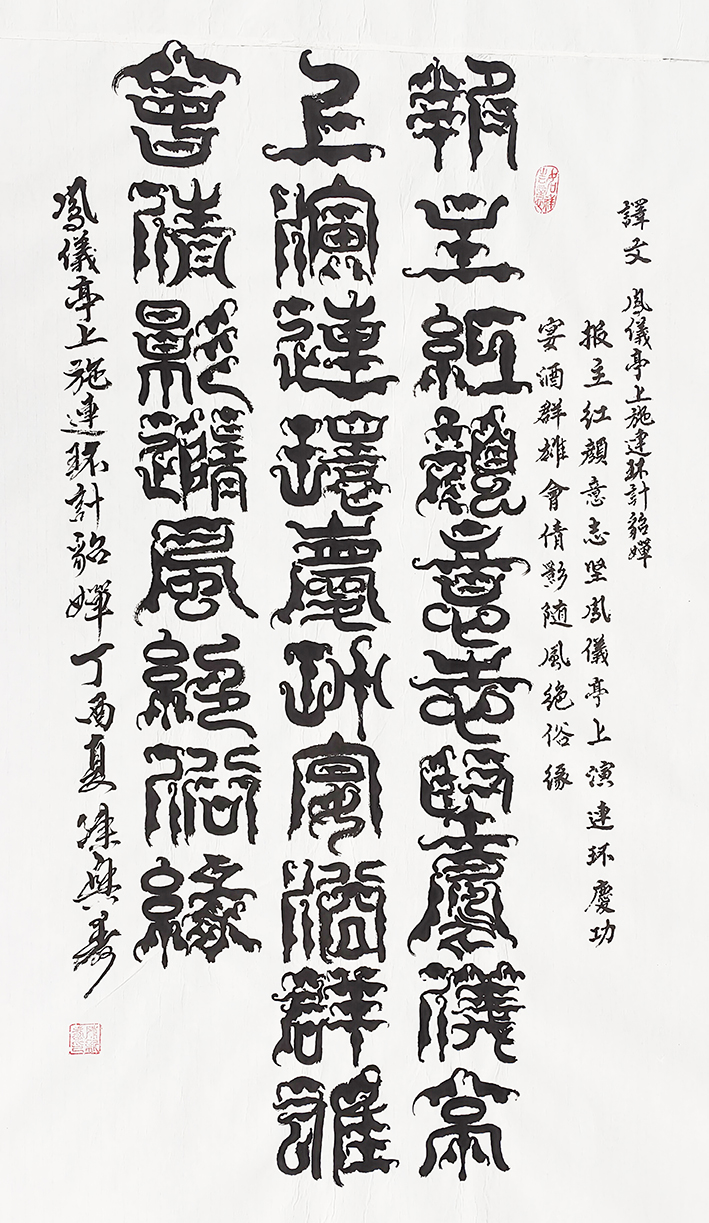 譯文 鳳儀亭上施連环計貂嬋
报主红顏意志坚鳳儀亭上演連环慶功
宴酒群雄會倩影随風絶俗缘
報主紅顏意志堅鳳儀亭
上演連環慶功宴酒群雄
會倩影隨風絕俗緣
鳳儀亭上施連环計貂嬋丁酉夏